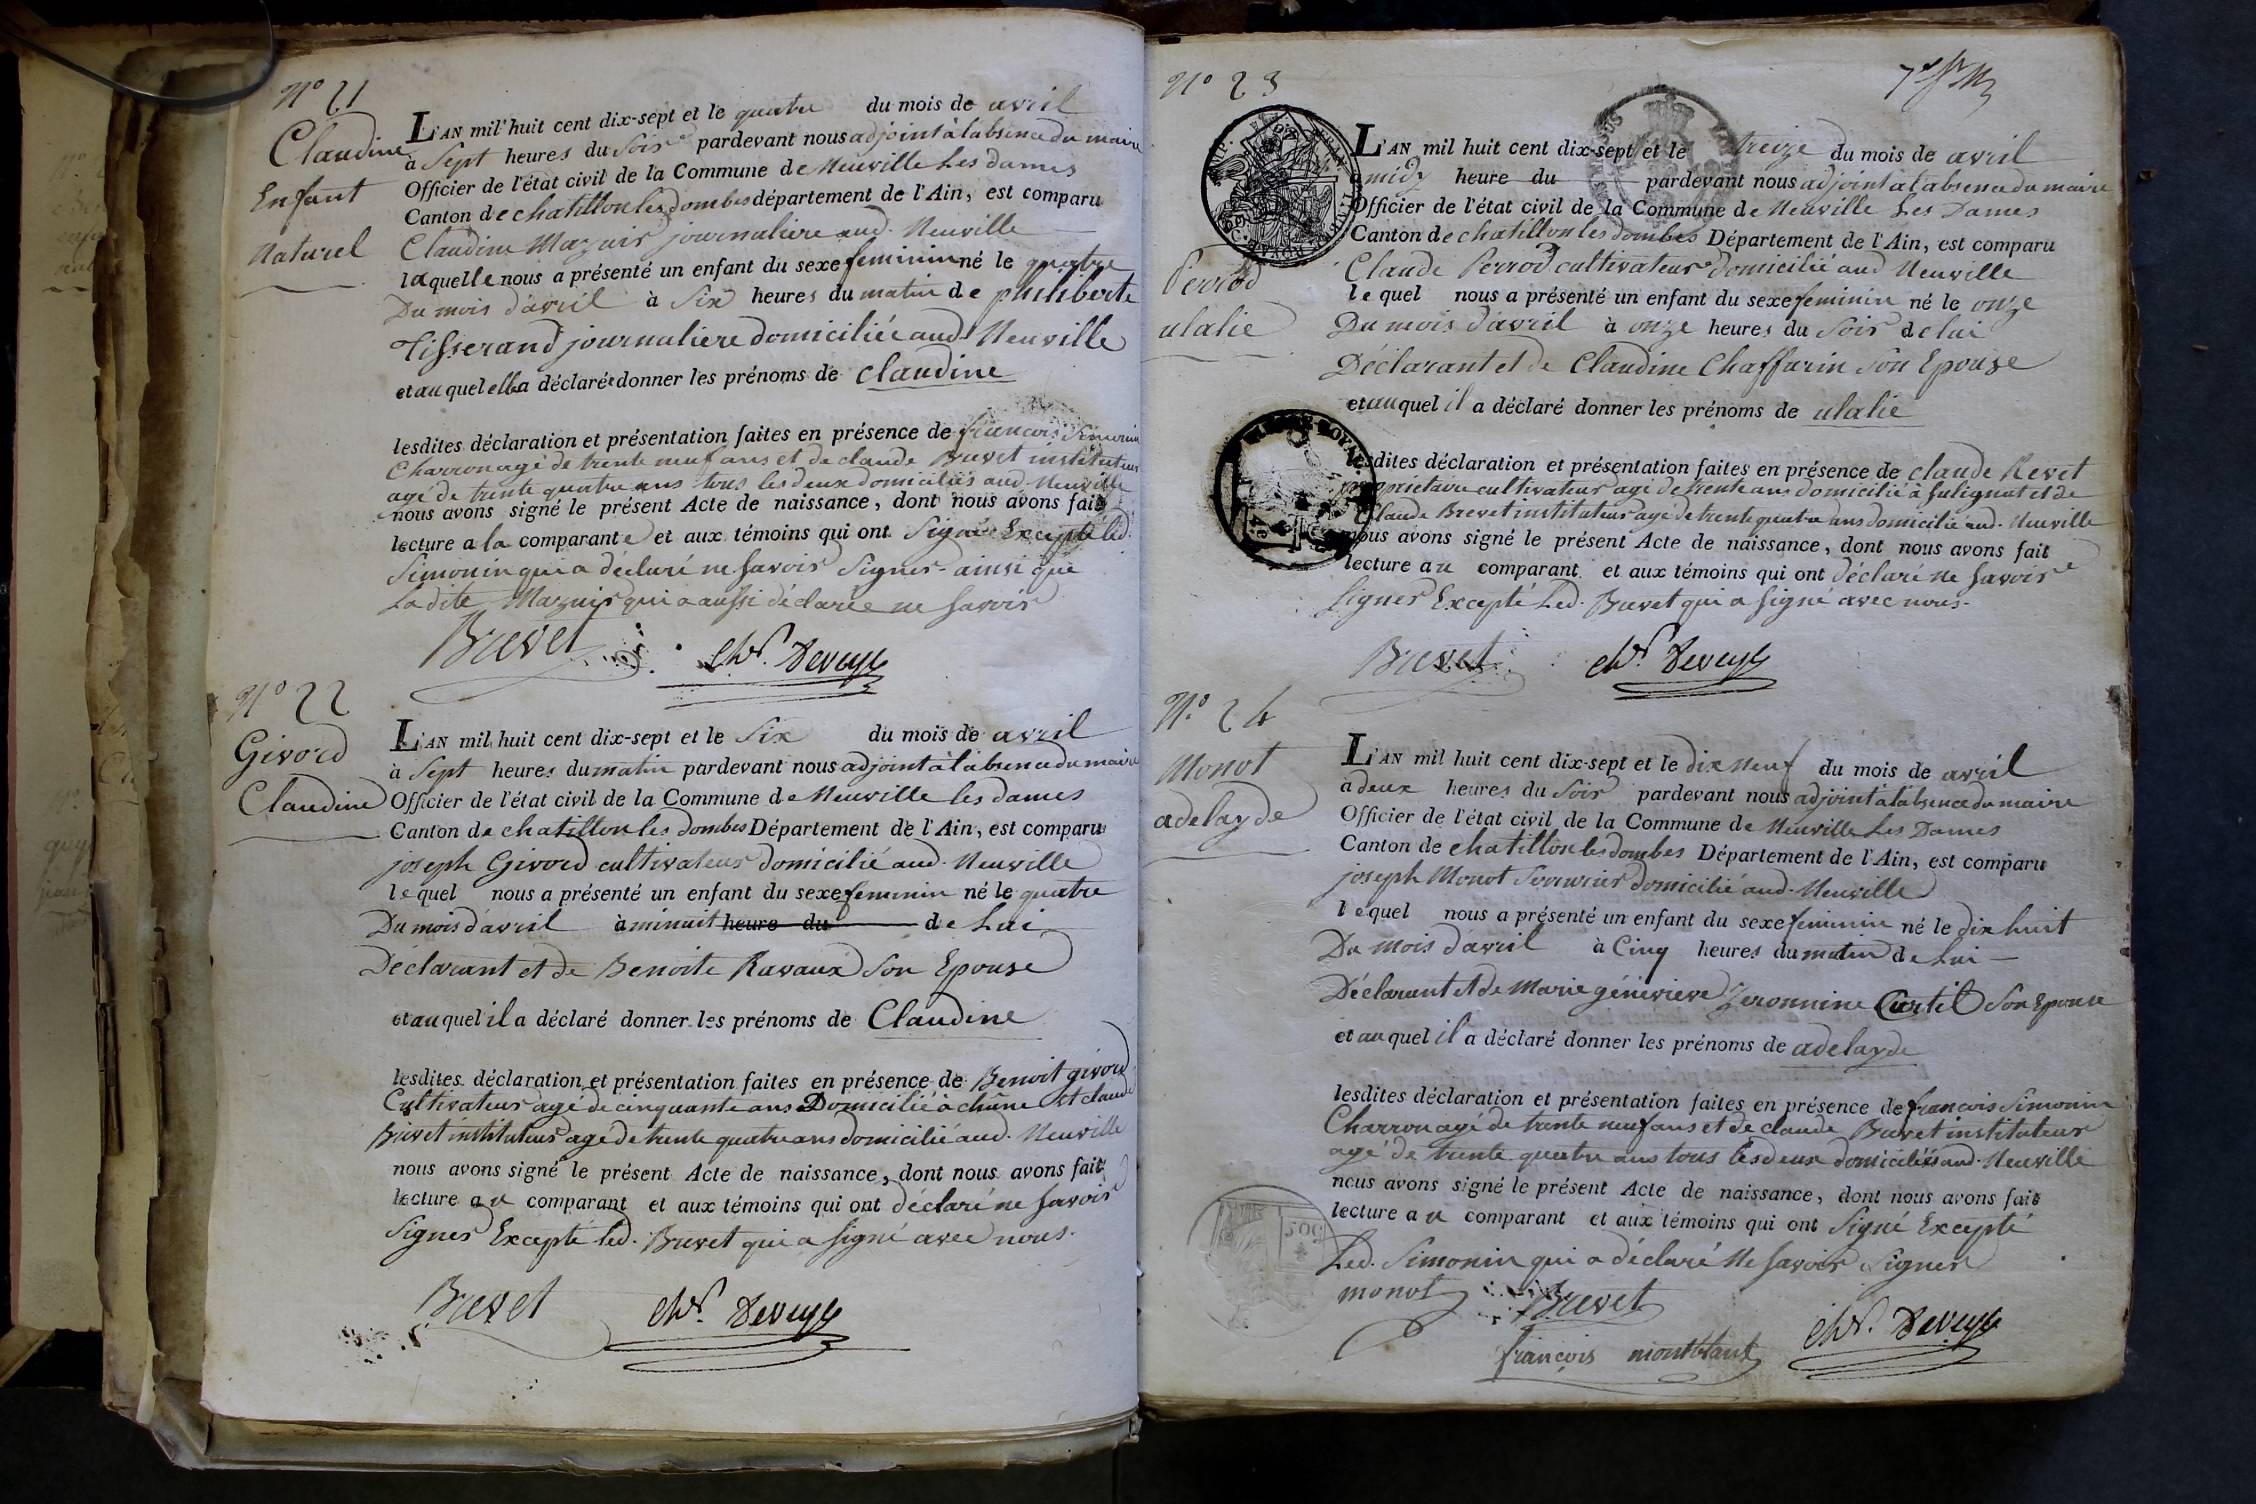 N° 21
Claudine
Enfant
Naturel
L'AN mil huit cent dix-sept et le quatre du mois de avril
à Sept heures du Soir pardevant nous adjoint à l'absence du maire
Officier de l'état civil de la Commune de Neuville Les Dames
Canton de chatillon les dombes département de l'Ain, est comparu
Claudine Mazuir journaliere aud. Neuville
laquelle nous a présenté un enfant du sexe feminin né le quatre
Du mois d'avril à Six heures du matin de philiberte
Tisserand journaliere domiciliée aud. Neuville
et au quel elle a déclarée donner les prénoms de claudine
lesdites déclaration et présentation faites en présence de françois Simonin
Charron agé de trente neuf ans et de claude Brevet instituteur
agé de trente quatre ans tous les deux domiciliés aud. Neuville
nous avons signé le présent Acte de naissance, dont nous avons fait
lecture a la comparante et aux témoins qui ont Signé Excepté led.
Simonin qui a déclaré ne Savoir Signer ainsi que
La dite Mazuir qui a aussi déclarée ne Savoir
Brevet chr. Deveyle
N° 22
Givord
Claudine
L'AN mil huit cent dix-sept et le Six du mois de avril
à Sept heures du matin pardevant nous adjoint à l'absence du maire
Officier de l'état civil de la Commune de Neuville les dames
Canton de chatillon les dombes Département de l'Ain, est comparu
joseph Givord cultivateur domicilié aud. Neuville
lequel nous a présenté un enfant du sexe feminin né le quatre
Du mois d'avril à minuit heure du de Lui
Déclarant et de Benoite Ravaux Son Epouse
et au quel il a déclaré donner les prénoms de Claudine
lesdites déclaration et présentation faites en présence de Benoit givord
Cultivateur agé de cinquante ans Domicilié à châne et claude
Brevet instituteur agé de trente quatre ans domicilié aud. Neuville
nous avons signé le présent Acte de naissance, dont nous avons fait
lecture au comparant et aux témoins qui ont déclaré ne Savoir
Signer Excepté led. Brevet qui a Signé avec nous.
Brevet chr. Deveyle
N° 23
Perrod
ulalie
L'AN mil huit cent dix-sept et le treize du mois de avril
a midy heure du pardevant nous adjoint à l'absence du maire
Officier de l'état civil de la Commune de Neuville Les Dames
Canton de chatillon les dombes Département de l'Ain, est comparu
Claude Perrod cultivateur domicilié aud Neuville
lequel nous a présenté un enfant du sexe feminin né le onze
Du mois d'avril à onze heures du Soir de lui
Déclarant et de Claudine Chaffurin Son Epouse
et au quel il a déclaré donner les prénoms de ulalie
lesdites déclaration et présentation faites en présence de claude Revet
proprietaire cultivateur agé de trente ans domicilié à Sulignat et de
Claude Brevet instituteur agé de trente quatre ans domicilié aud. Neuville
nous avons signé le présent Acte de naissance, dont nous avons fait
lecture au comparant et aux témoins qui ont déclaré ne Savoir
Signer Excepté Led. Brevet qui a Signé avec nous.
Brevet chr. Deveyle
N° 24
Monot
adelayde
L'AN mil huit cent dix-sept et le dix neuf du mois de avril
à deux heures du Soir pardevant nous adjoint à l'absence du maire
Officier de l'état civil de la Commune de Neuville Les Dames
Canton de chatillon les dombes Département de l'Ain, est comparu
joseph Monot domicilié aud. Neuville
lequel nous a présenté un enfant du sexe feminin né le dix huit
Du mois d'avril à Cinq heures du matin de Lui
Déclarant et de Marie génevieve Jeronnine Curtil Son Epouse
et au quel il a déclaré donner les prénoms de adelayde
lesdites déclaration et présentation faites en présence de françois Simonin
Charron agé de trente neuf ans et de claude Brevet instituteur
agé de trente quatre ans tous les deux domiciliés aud. Neuville
nous avons signé le présent Acte de naissance, dont nous avons fait
lecture au comparant et aux témoins qui ont Signé Excepté
Led. Simonin qui a déclaré Ne Savoir Signer
monot Brevet
françois montblant chr. Deveyle